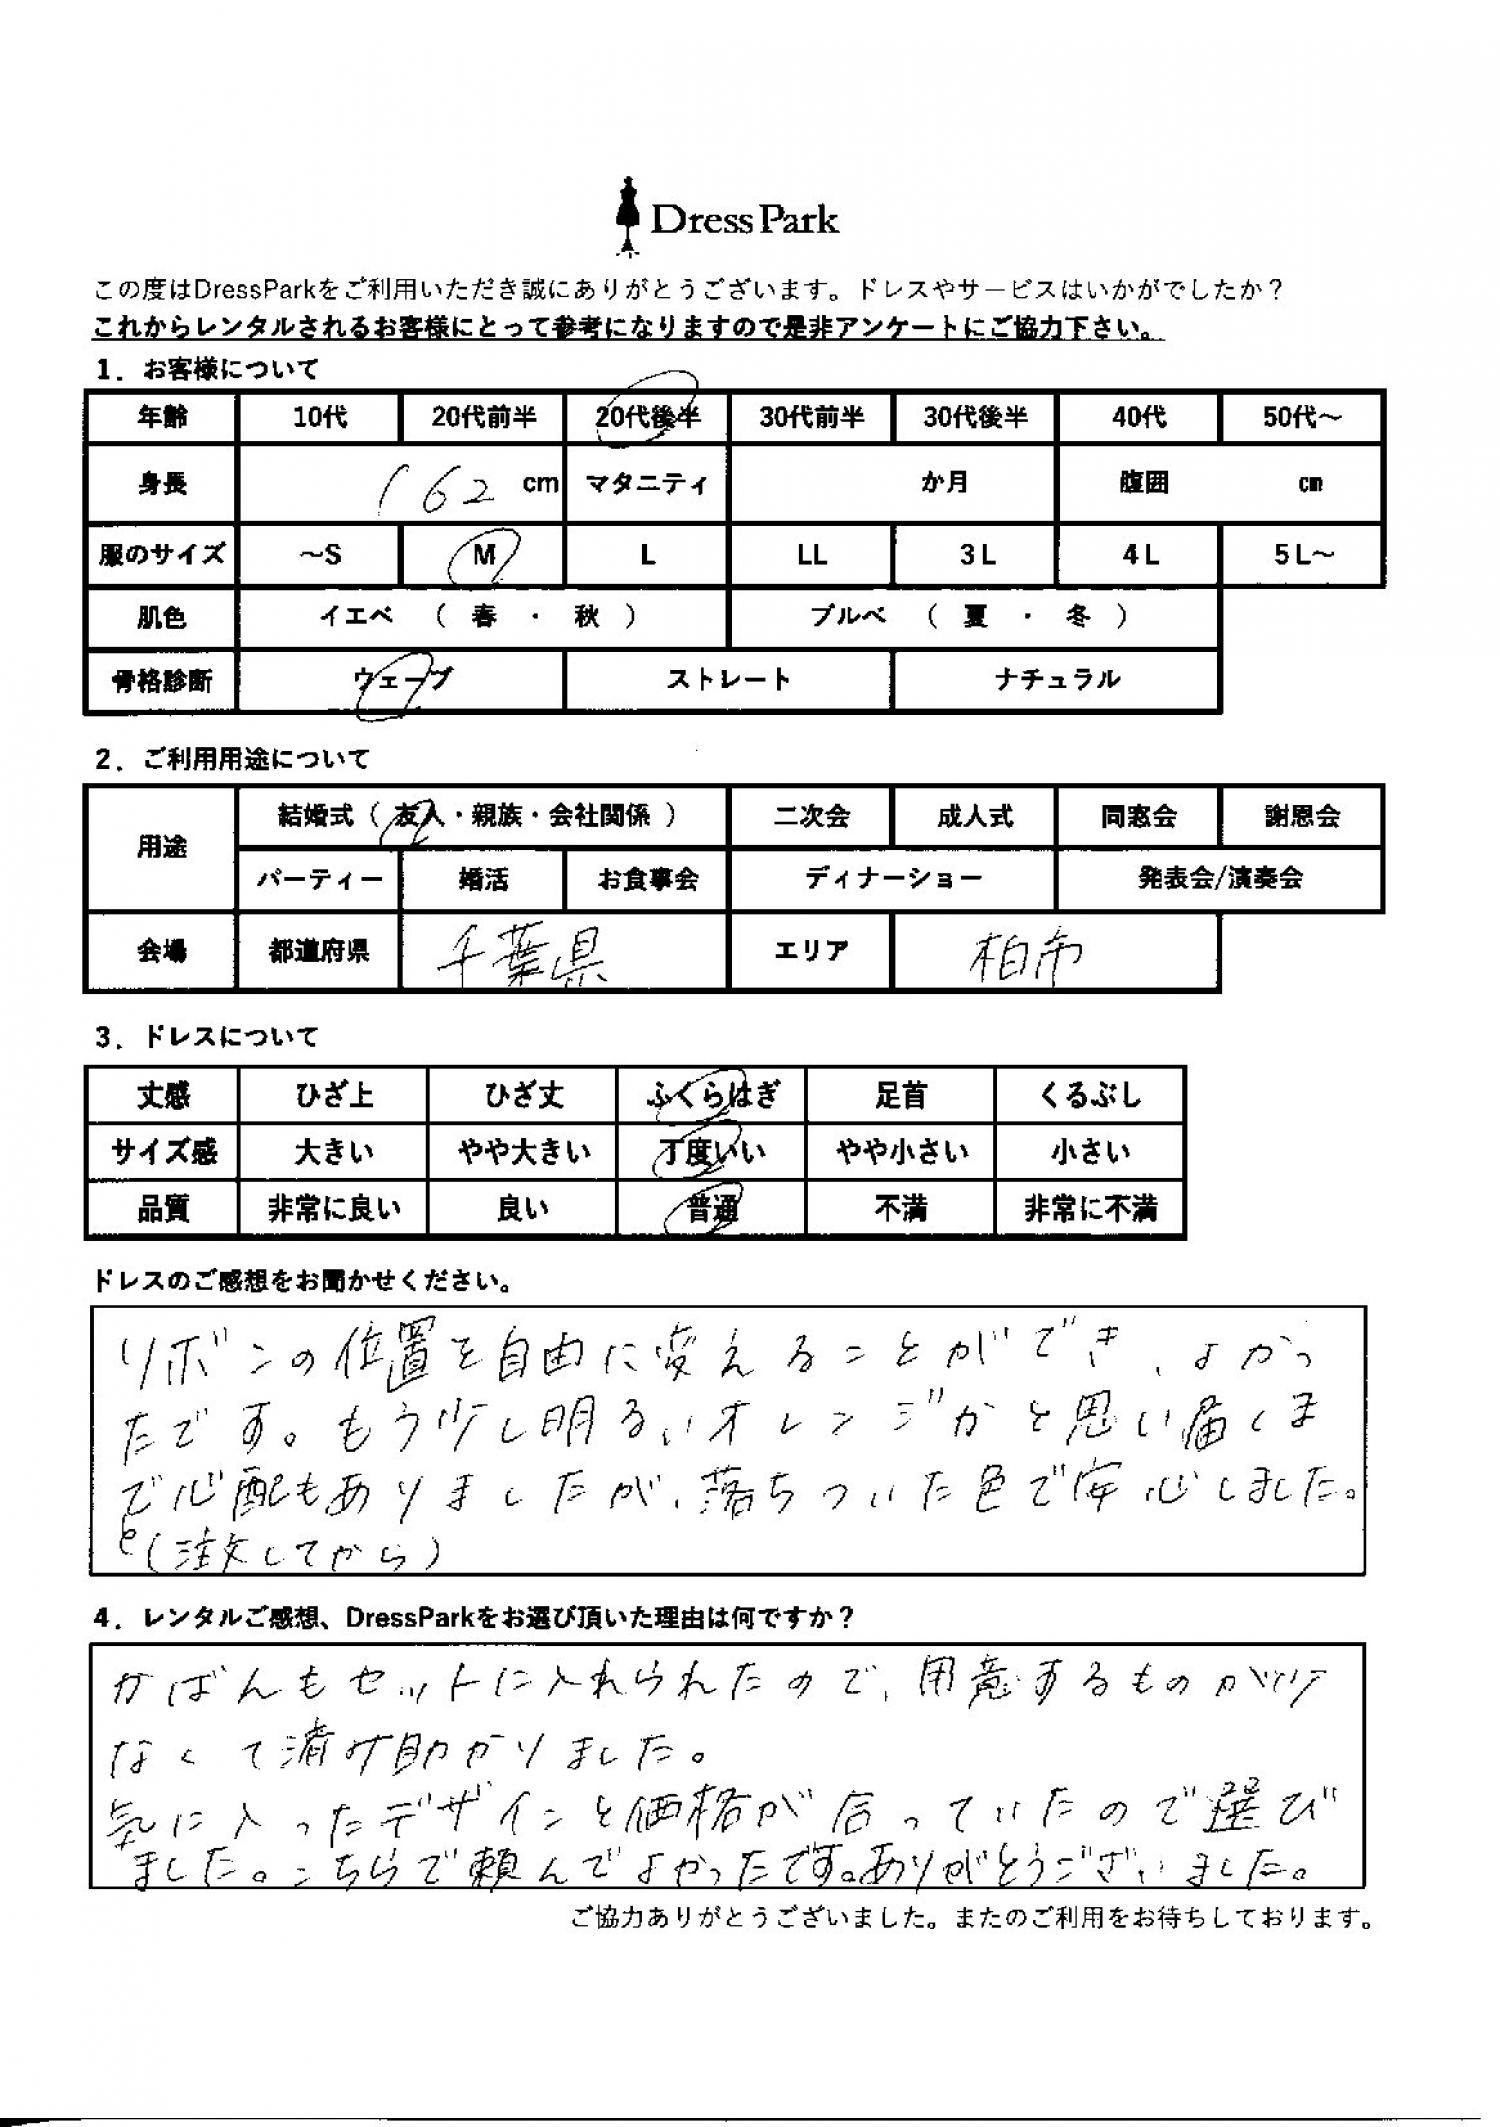 Dress Park
この度はDressParkをご利用いただき誠にありがとうございます。ドレスやサービスはいかがでしたか？
これからレンタルされるお客様にとって参考になりますので是非アンケートにご協力下さい。
1．お客様について
年齢 10代 20代前半 20代後半 30代前半 30代後半 40代 50代～
身長 162 cm マタニティ か月 腹囲 cm
服のサイズ ～S M L LL 3L 4L 5L～
肌色 イエベ （ 春 ・ 秋 ） ブルべ （ 夏 ・ 冬 ）
骨格診断 ウェーブ ストレート ナチュラル
2．ご利用用途について
用途 結婚式（ 友人・親族・会社関係 ） 二次会 成人式 同窓会 謝恩会
パーティー 婚活 お食事会 ディナーショー 発表会/演奏会
会場 都道府県 千葉県 エリア 柏市
3．ドレスについて
丈感 ひざ上 ひざ丈 ふくらはぎ 足首 くるぶし
サイズ感 大きい やや大きい 丁度いい やや小さい 小さい
品質 非常に良い 良い 普通 不満 非常に不満
ドレスのご感想をお聞かせください。
リボンの位置を自由に変えることができ、よかっ
たです。もう少し明るいオレンジかと思い届くま
で心配もありましたが、落ちついた色で安心しました。
(注文してから)
4．レンタルご感想、DressParkをお選び頂いた理由は何ですか？
かばんもセットに入れられたので、用意するものが少
なくて済み助かりました。
気に入ったデザインと価格が合っていたので選び
ました。こちらで頼んでよかったです。ありがとうございました。
ご協力ありがとうございました。またのご利用をお待ちしております。